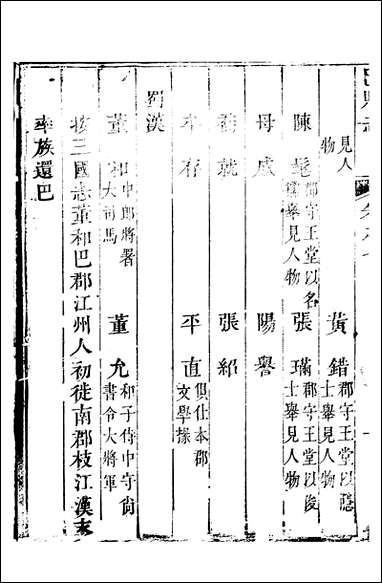 見人物　黃錯　郡守王堂以隱士舉見人物
陳髦　郡守王堂以名儒舉見人物　張璊　郡守王堂以俊士舉見人物
母成　陽譽
喬就　張紹
牟存　平直　俱仕本郡文學掾
蜀漢
董和　中郎將署大司馬　董允　和子侍中守尚書令大將軍
按三國志董和巴郡江州人初徙南郡枝江漢末
率族還巴